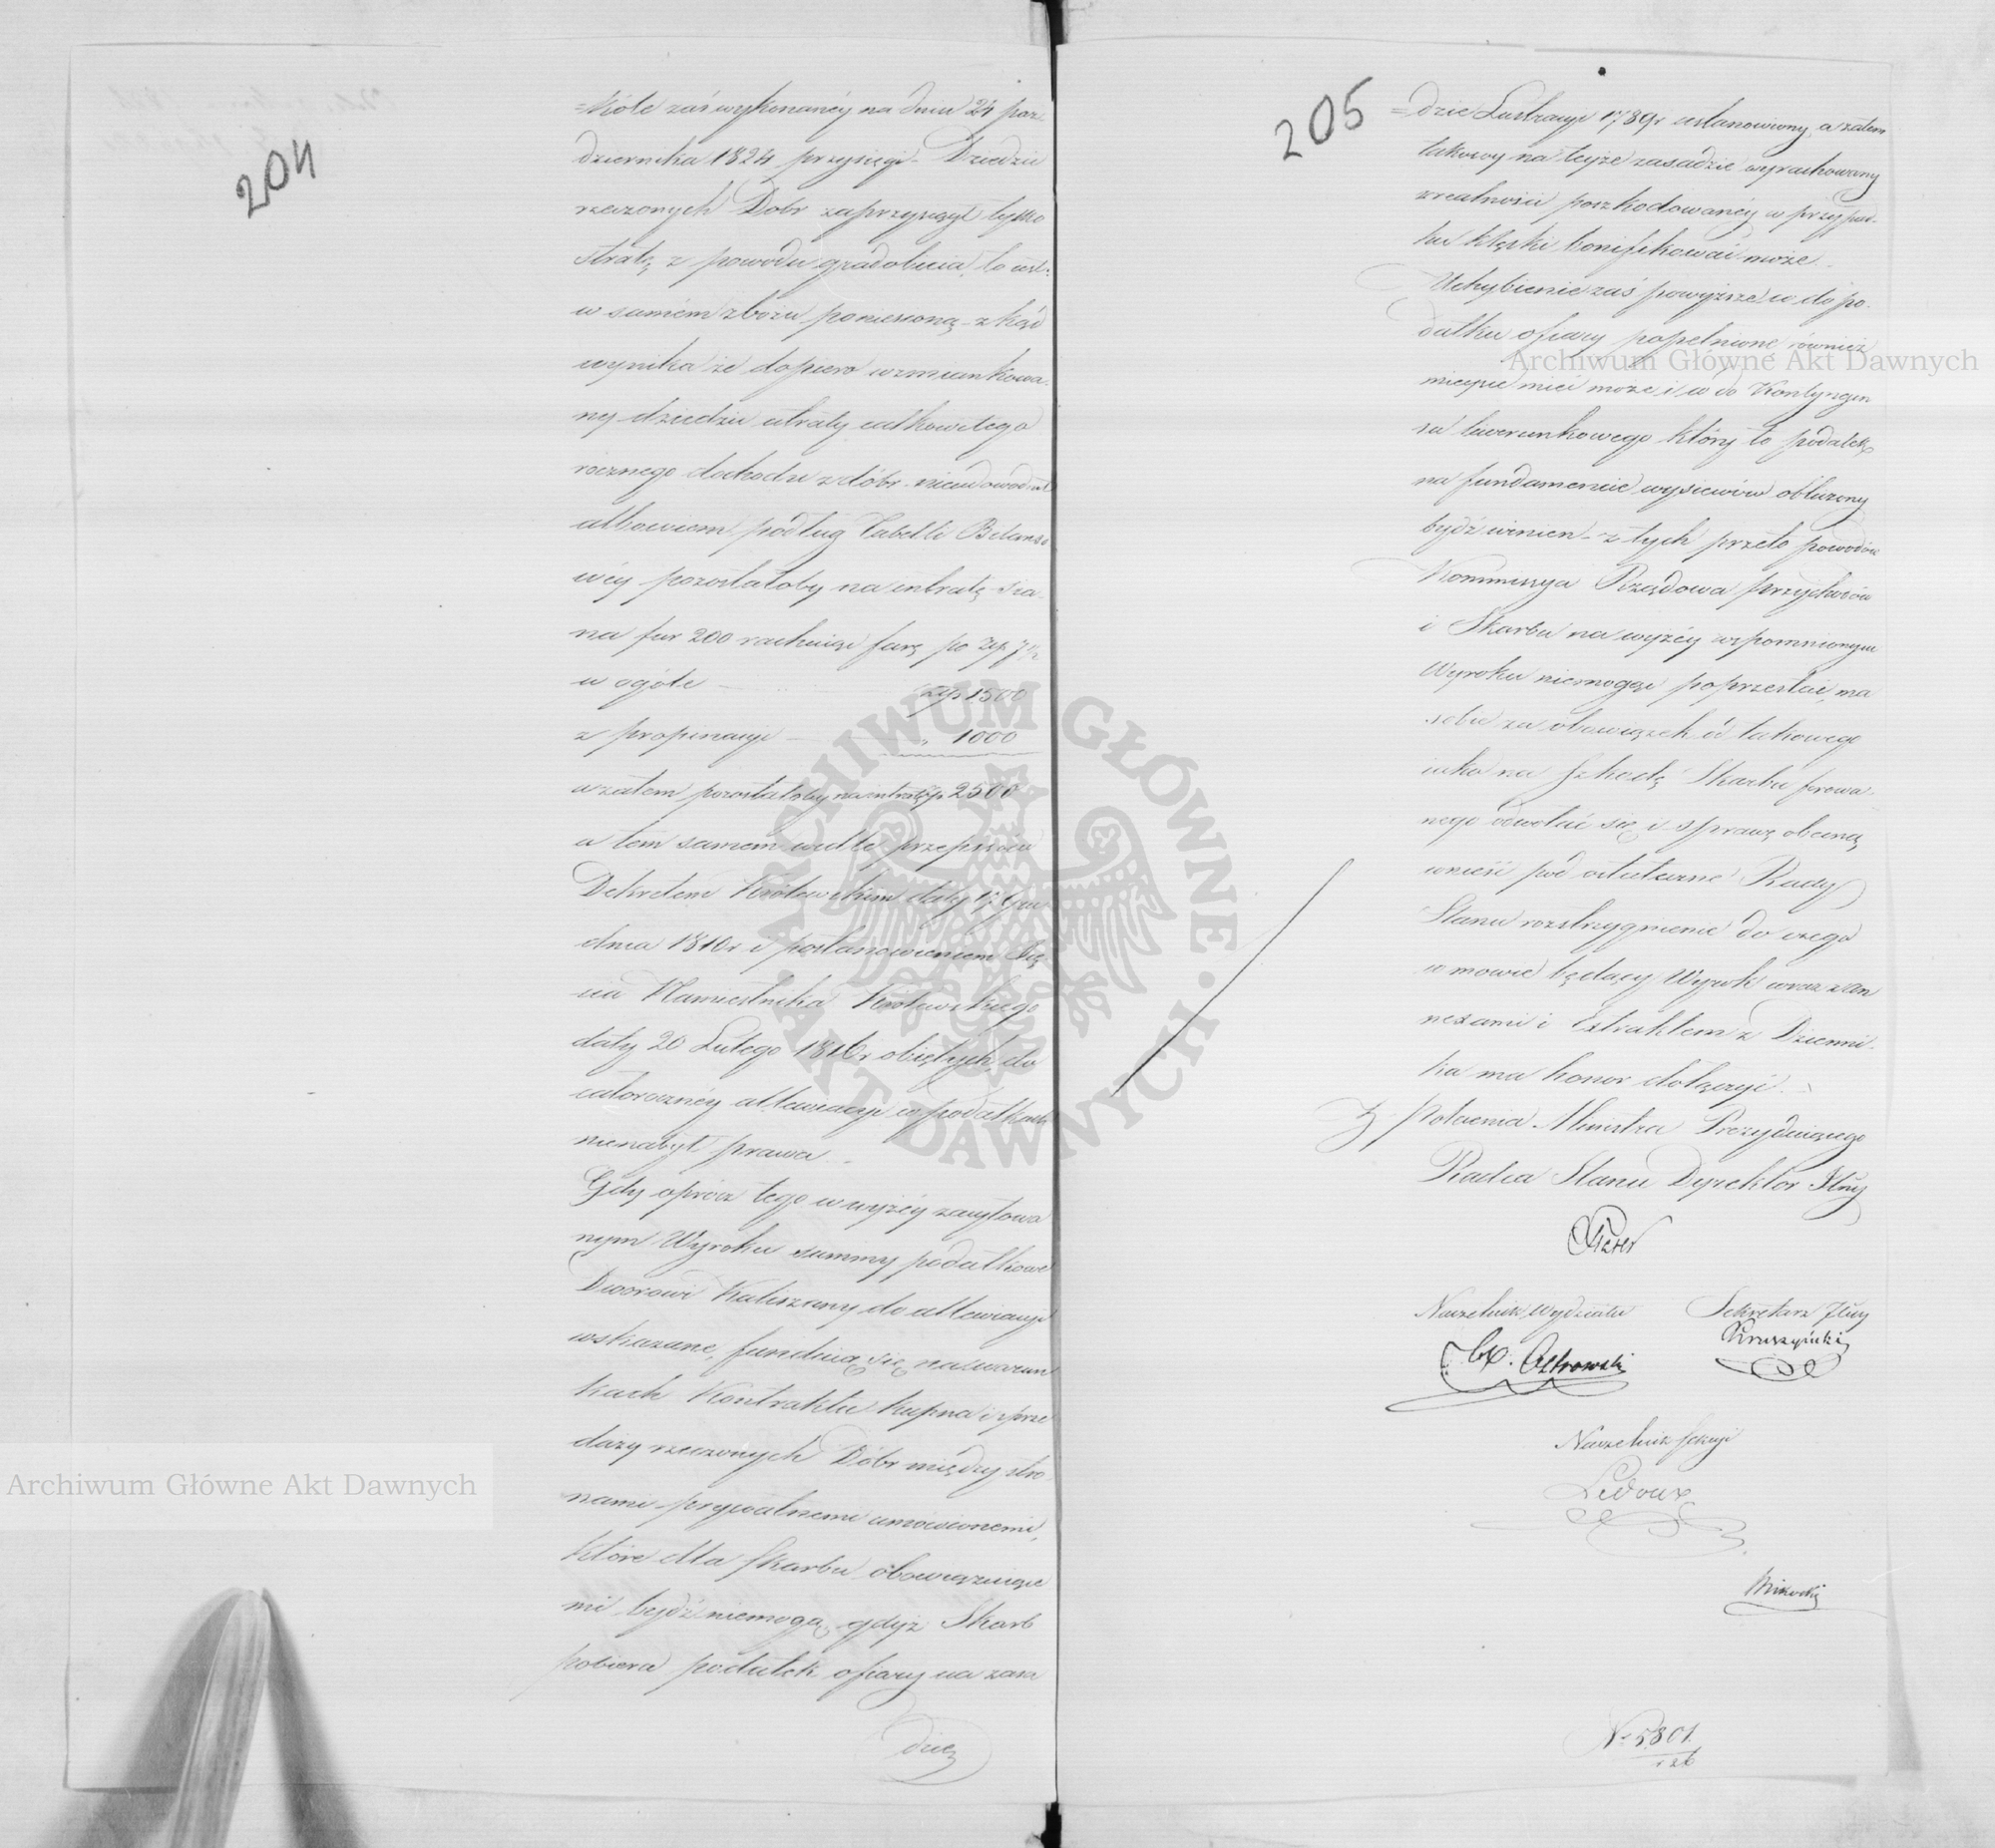 204
=kóle zaś wykonanéy na dniu 24 paz=
dziernika 1824 przysięgi - Dziedzic
rzeczonych Dobr zaprzysiągł tylko
stratę z powodu gradobicia, to iest=
w samém zbożu poniesioną - z kąd
wynika że dopiero wzmiankowa-
ny dziedzic utraty całkowitego
rocznego dochodu z dóbr nieudowodnił
albowiem podług Tabelli Bilanso
wéy pozostałoby na intratę sia-
na fur 200 rachuiąc furę po Złp 7½
w ogóle — Złp 1500
z propinacyi — „ 1000
a zatem pozostałoby na intratę Złp 2500
a tem samem wedle przepisów
Dekretem Królewskim daty 17 Gru
dnia 1810 r i postanowieniem Xię
cia Namiestnika Królewskiego
daty 20 Lutego 1816 r obiętych, do
całorocznéy allewiacyi w podatkach
nienabył prawa.
Gdy oprócz tego w wyżéy zacytowa
nym Wyroku summy podatkowe
Dworowi Kaliszany do allewiacyi
wskazane, funduią się na warun
kach Kontraktu kupna i sprze
daży rzeczonych Dóbr między stro
nami prywatnemi umówionemi,
które dla Skarbu obowiązuiące
mi bydź niemogą, gdyż Skarb
pobiera podatek ofiary na zasa
dzie
205
=dzie Lustracyi 1789 r ustanowiony, a zatem
takowy na teyże zasadzie wyrachowany
zrealności poszkodowanéy w przypad-
ku klęski bonifikować może.
Uchybienie zaś powyższe co do po-
datku ofiary popełnione również
mieysce mieć może i co do Kontyngen
su liwerunkowego który to podatek
na fundamencie wysiewów obliczony
bydź winien - z tych przeto powodów
Kommissya Rządowa Przychodów
i Skarbu na wyżéy wspomnionym
Wyroku niemogąc poprzestać, ma
sobie za obowiązek od takowego
iako na szkodę Skarbu ferowa-
nego odwołać się i sprawę obecną
wnieść pod ostateczne Rady
Stanu rozstrzygnienie do czego
w mowie będący Wyrok wraz z an
nexami i Extraktem z Dzienni-
ka ma honor dołączyć.
Z Polecenia Ministra Prezyduiącego
Radca Stanu Dyrektor Jlny
Naczelnik Wydziału Sekretarz Jlny
Ostrowski Kruszyński
Naczelnik Sekcyi
Ledoux
No 5801
Archiwum Główne Akt Dawnych
Archiwum Główne Akt Dawnych
ARCHIWUM GŁÓWNE · AKT DAWNYCH ·